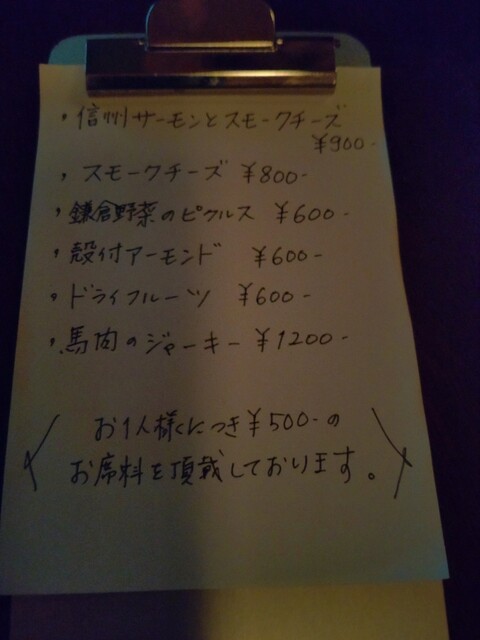 ・信州サーモンとスモークチーズ
¥900-
・スモークチーズ ¥800-
・鎌倉野菜のピクルス ¥600-
・殻付アーモンド ¥600-
・ドライフルーツ ¥600-
・馬肉のジャーキー ¥1200-
お1人様につき¥500-の
お席料を頂戴しております。